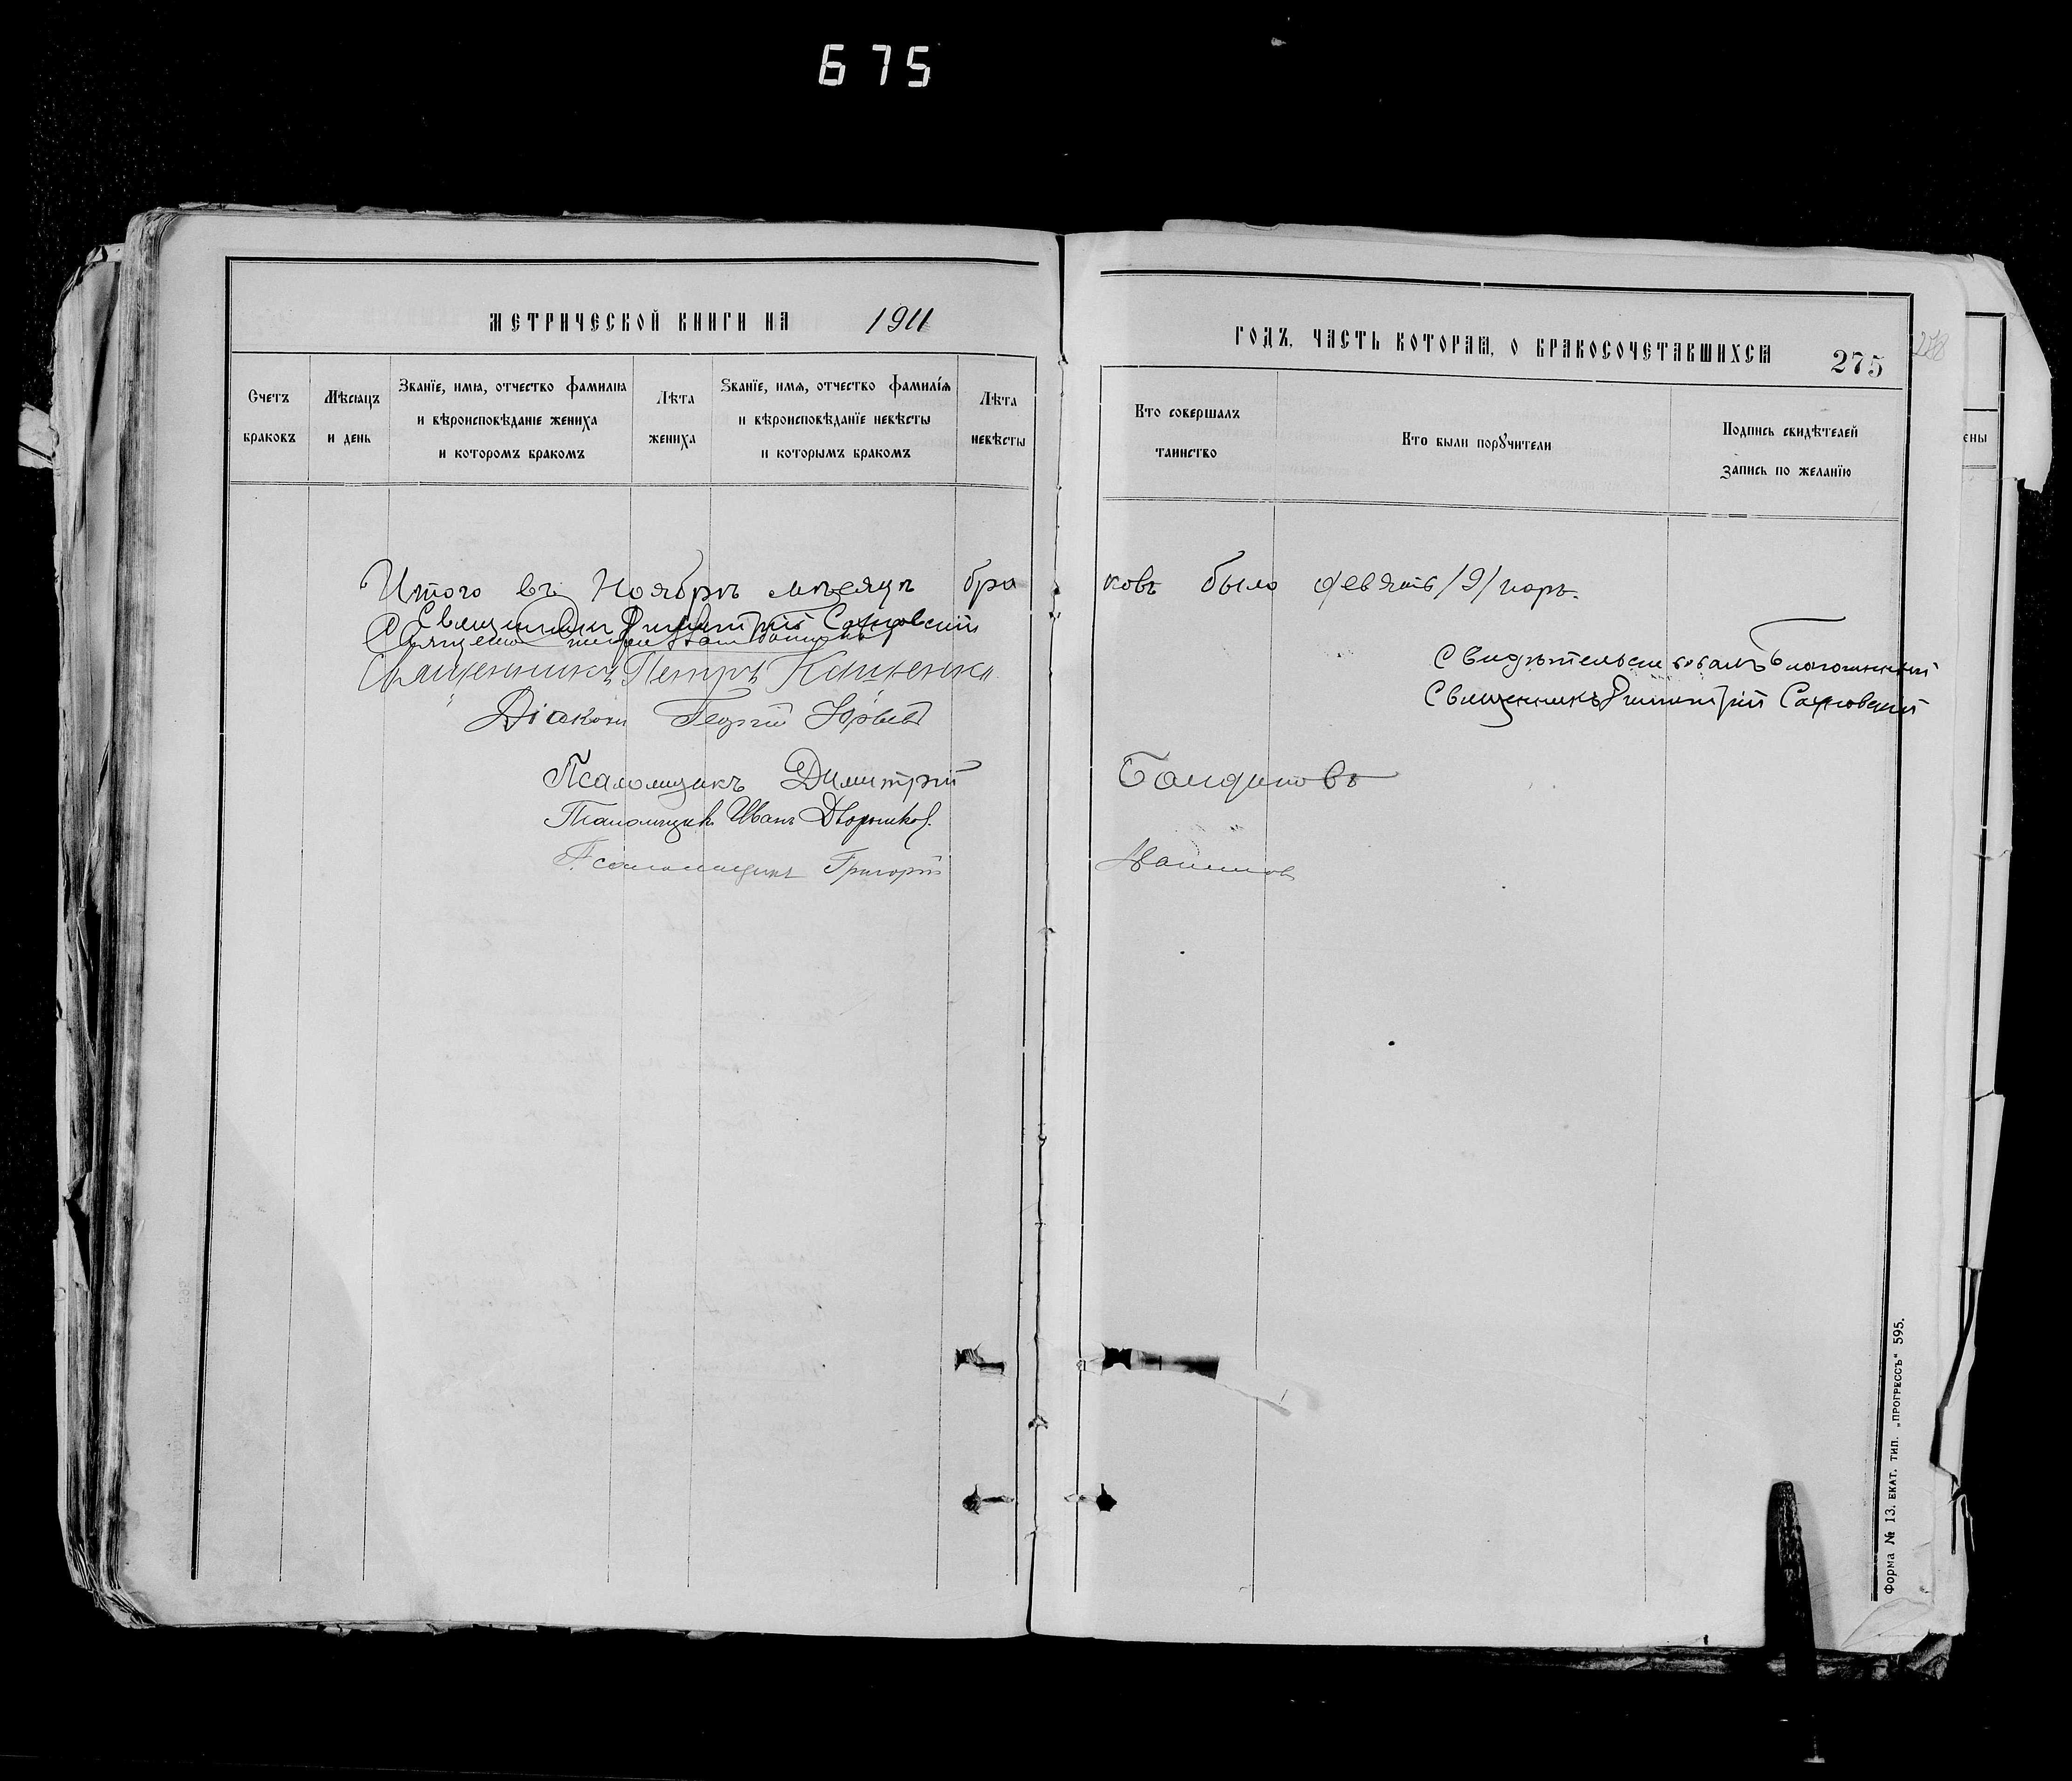 675
МЕТРИЧЕСКОЙ КНИГИ НА 1911
ГОДЪ, ЧАСТЬ КОТОРАЯ, О БРАКОСОЧЕТАВШИХСЯ 275
Счетъ
браковъ
Мѣсяцъ
и день
Званїе, имя, отчество фамилиа
и вѣроисповѣданїе жениха
и которомъ бракомъ
Лѣта
жениха
Званїе, имя, отчество фамилїя
и вѣроисповѣданїе невѣсты
и которымъ бракомъ
Лѣта
невѣсты
Кто совершалъ
таинство
Кто были порꙋчители
Подпись свидѣтелей
запись по желанїю
ены
Итого въ Ноябрѣ мѣсяцѣ браковъ было девять /9/ паръ.
Священникъ Димитрій Сахновскій
Священникъ
Священникъ Петръ
Діаконъ Георгій Юрьевъ
Псаломщикъ Димитрій
Псаломщикъ Иванъ Дворников.
Псаломщикъ Григорій
Свидѣтельствовалъ Благочинный
Священникъ Димитрій Сахновскій
Форма № 13. ЕКАТ. ТИП. „ПРОГРЕССЪ“ 595.